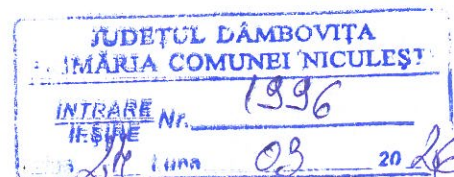 JUDEȚUL DÂMBOVIȚA
IMĂRIA COMUNEI NICULEȘT
INTRARE
IEȘIRE Nr. 1996
Luna 03 20